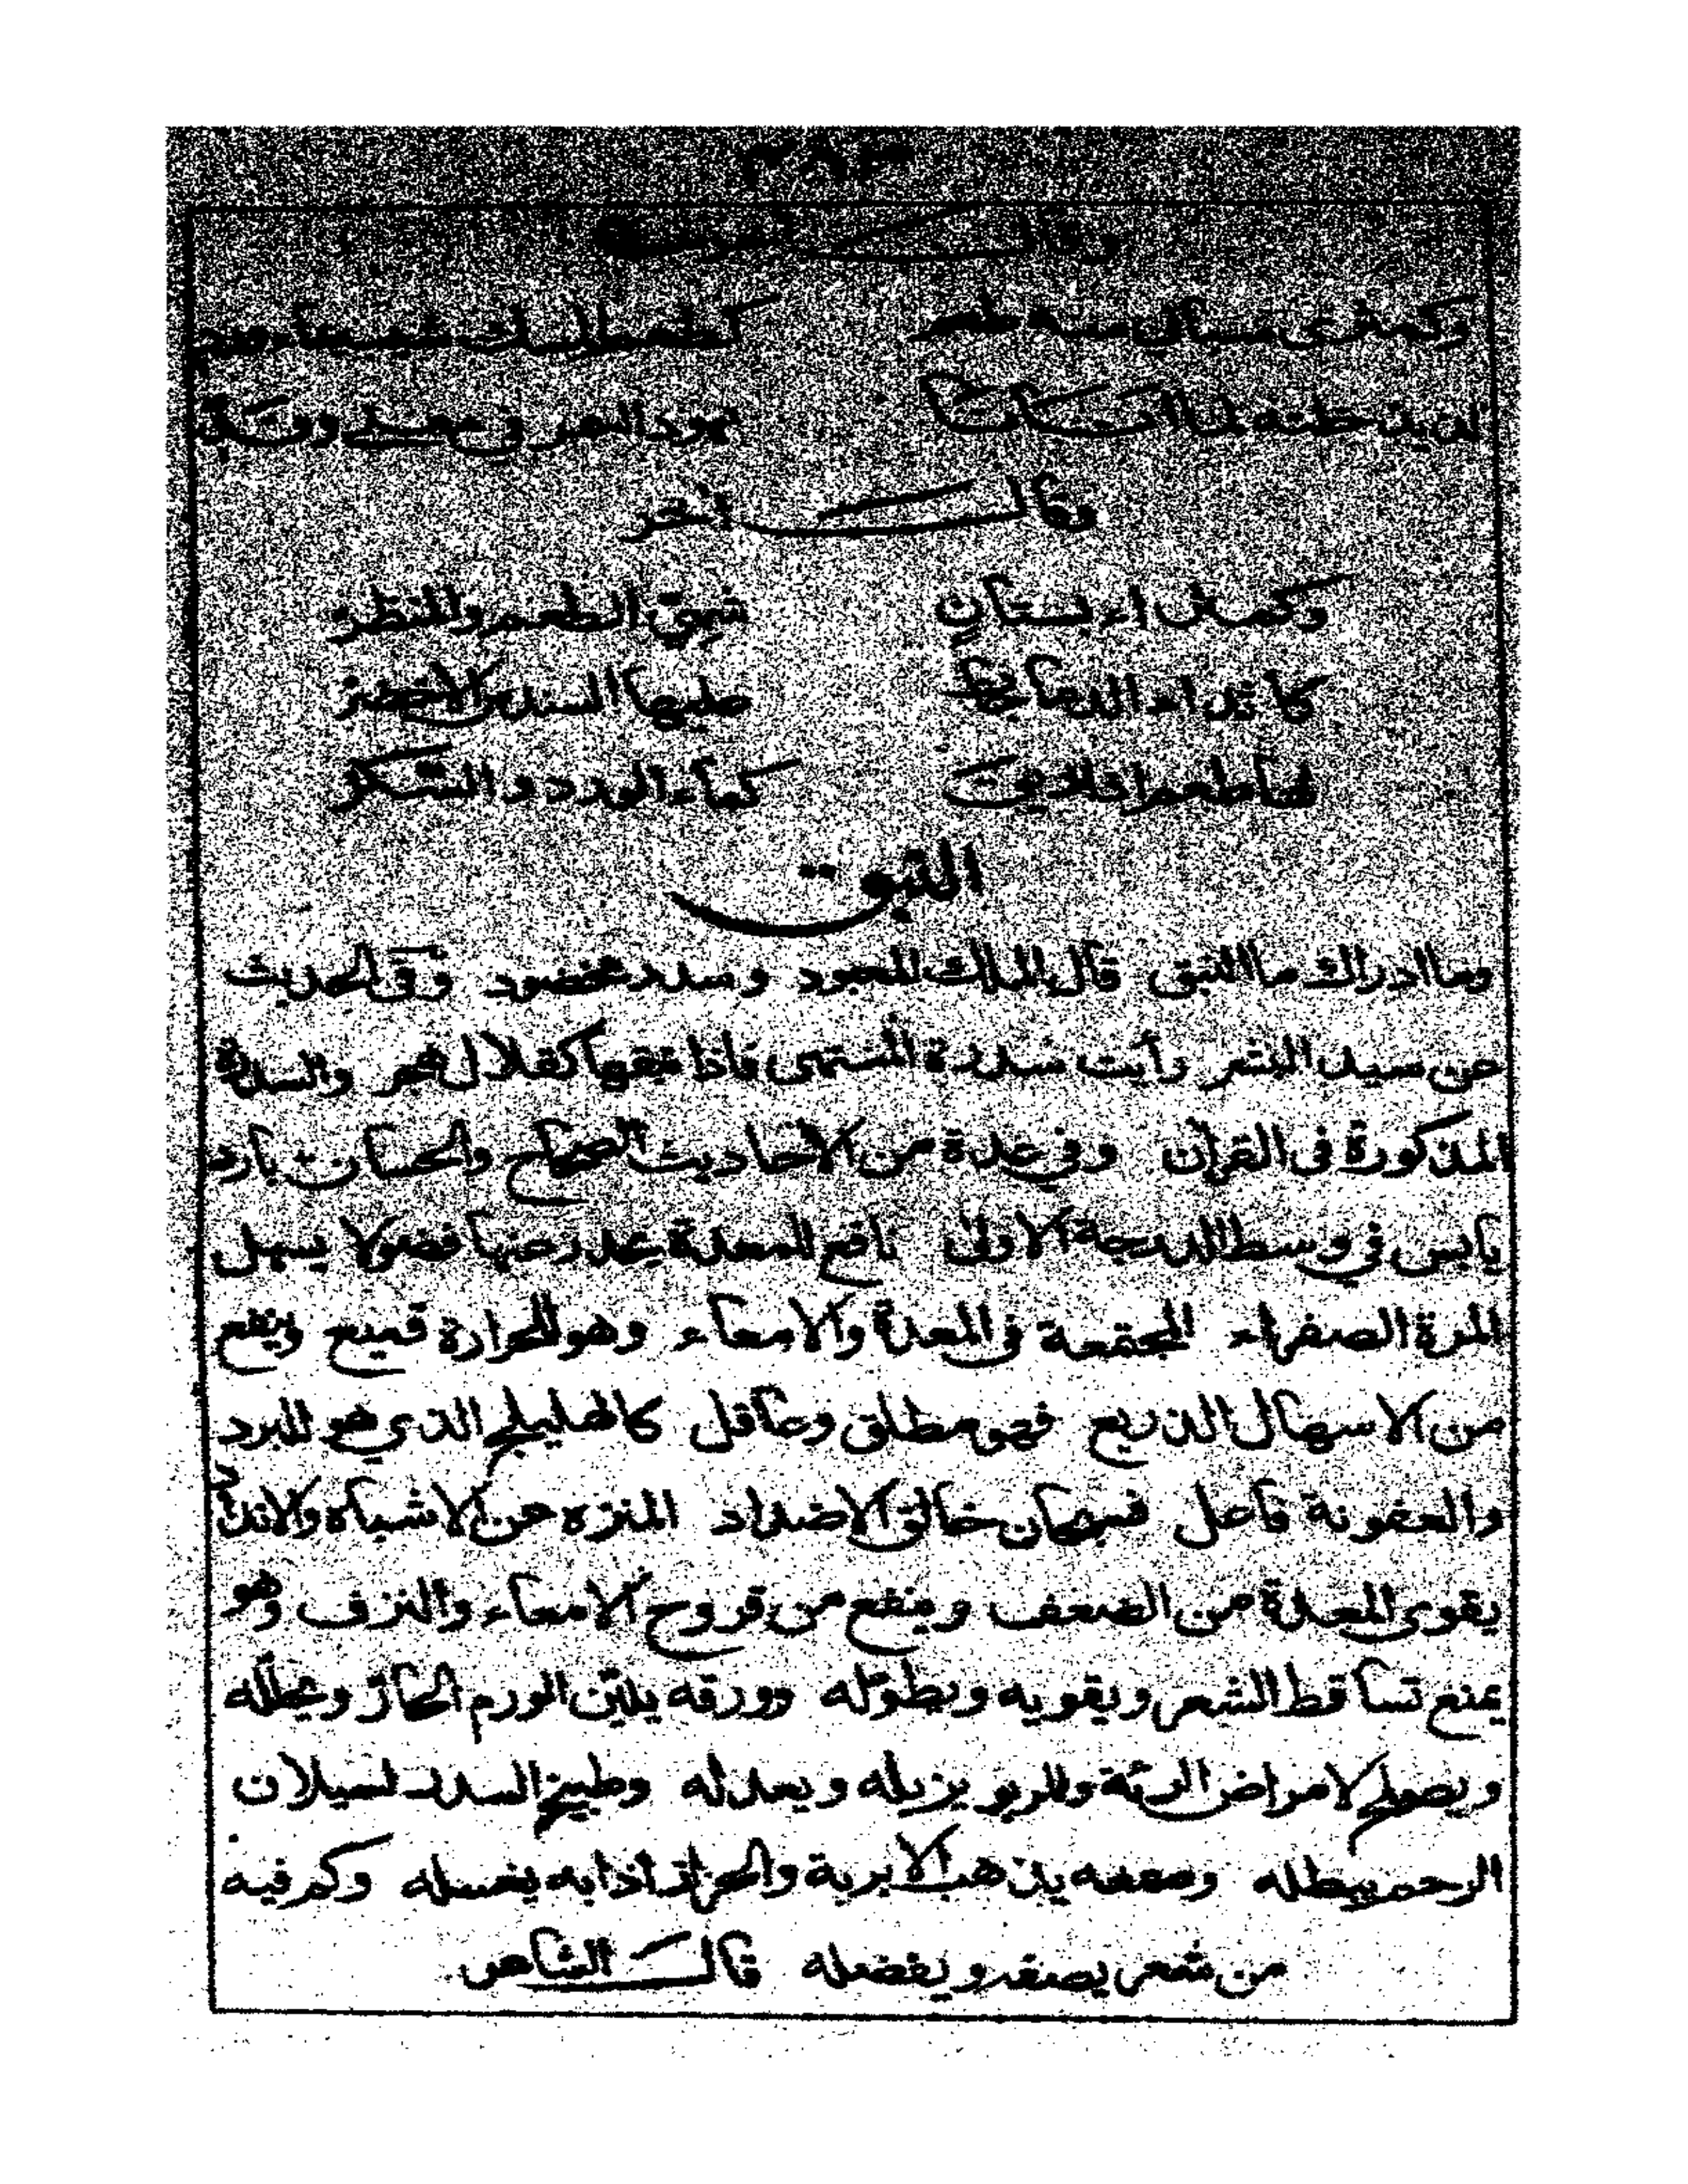 ٣٨٣
وقال
وكمثرى منه طعم كطعم المسك
لذيذ خلته لما أتانا نهود السمر في معنى وقد
وقال آخر
وكمثراء بستان شهي الطعم والمنظر
كاثداء الدما يحظ عليها السندس الاخضر
لها طعم اذا ذيقت كماء الورد والسكر
النبق
وما ادراك ما النبق قال الملك المعبود وسدر مخضود وفى الحديث
عن سيد البشر رأيت سدرة المنتهى فاذا نبقها كقلال هجر والسدرة
المذكورة فى القرآن وفى عدة من الاحاديث الصحاح والحسان بارد
يابس في وسط الدرجة الاولى نافع للمعدة يحدر عنها فضولا يسهل
المرة الصفراء المجتمعة فى المعدة والامعاء وهو للحرارة قميع وينفع
من الاسهال الذريع فهو مطلق وعاقل كالهليلج الذي هو للبرد
والعفونة قاصل فسبحان خالق الاضداد المنزه عن الاشباه والانداد
يقوى المعدة من الضعف وينفع من قروح الامعاء والنزف وهو
يمنع تساقط الشعر ويقويه ويطوّله وورقه يليّن الورم الحارّ ويحلّله
ويصلح لامراض الرئة وللربو يزيله ويعدله وطبيخ السدر لسيلان
الرحم يبطله وصمغه يذهب الابرية والحزاز اذا به يغسله وكم فيه
من شعر يصفه ويفضله قال الشاعر